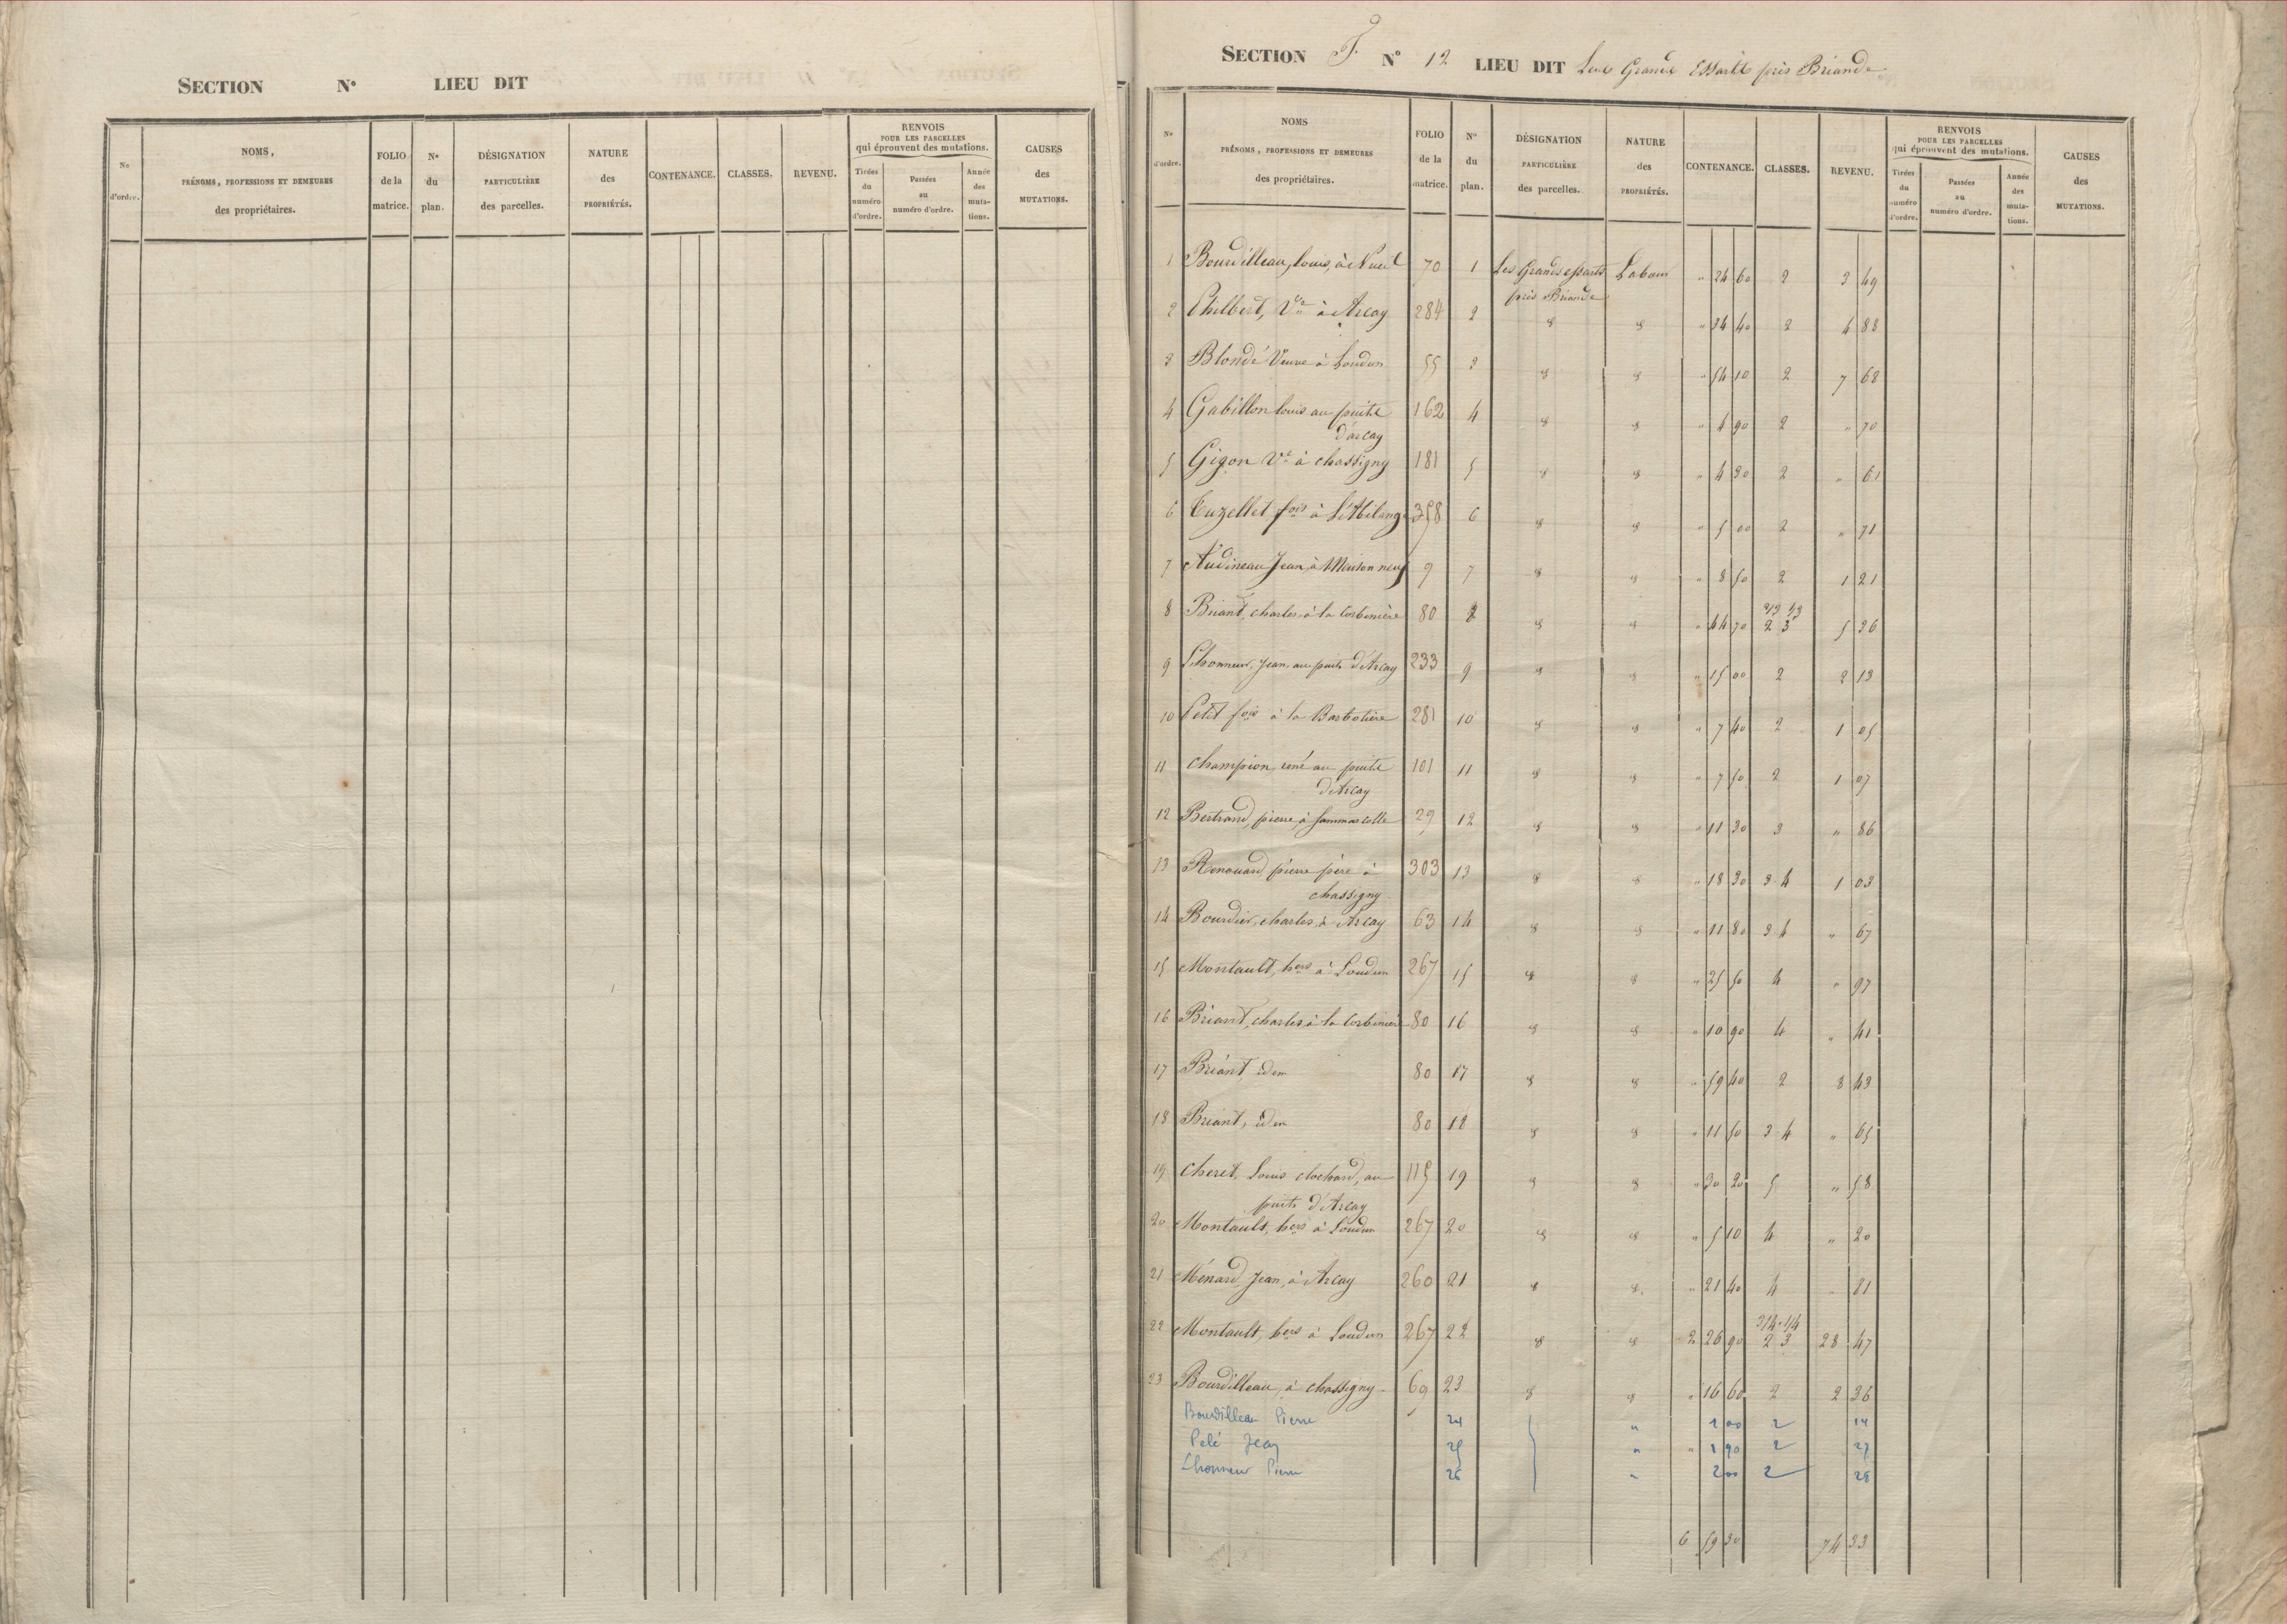 SECTION N° LIEU DIT
No d'ordre.
NOMS,
PRÉNOMS, PROFESSIONS ET DEMEURES
des propriétaires.
FOLIO de la matrice.
N° du plan.
DÉSIGNATION PARTICULIÈRE des parcelles.
NATURE des PROPRIÉTÉS.
CONTENANCE.
CLASSES.
REVENU.
RENVOIS
POUR LES PARCELLES
qui éprouvent des mutations.
Tirées du numéro d'ordre.
Passées au numéro d'ordre.
Année des muta-tions.
CAUSES des MUTATIONS.
SECTION F. N° 12 LIEU DIT Les Grands Essarts près Briande
No d'ordre.
NOMS
PRÉNOMS, PROFESSIONS ET DEMEURES
des propriétaires.
FOLIO de la matrice.
N° du plan.
DÉSIGNATION PARTICULIÈRE des parcelles.
NATURE des PROPRIÉTÉS.
CONTENANCE.
CLASSES.
REVENU.
RENVOIS
POUR LES PARCELLES
qui éprouvent des mutations.
Tirées du numéro d'ordre.
Passées au numéro d'ordre.
Année des muta-tions.
CAUSES des MUTATIONS.
1 Bourdilleau, louis, à Nueil 70 1 Les Grands essarts Labour " 24 60 2 3 49
près Briande
2 Philbert, Vve à Arcay 284 2 " " " 34 40 2 4 88
3 Blondé Veuve à Loudun 55 3 " " " 54 10 2 7 68
4 Gabillon louis au puits 162 4 " " " 4 90 2 " 70
d'arcay
5 Gigon Ve à chassigny 181 5 " " " 4 30 2 " 61
6 Cuzellet fois à 358 6 " " " 5 00 2 " 71
7 Audineau Jean, à Maison neuf 9 7 " " " 8 50 2 1 21
8 Briant, charles, à la Corbinière 80 8 " " " 44 70 2/3 1/3 2 3 5 36
9 Lhonneur, Jean, au puits d'Arcay 233 9 " " " 15 00 2 2 13
10 Petit fois à la Barbotière 281 10 " " " 7 40 2 1 05
11 Champion, rené au puits 101 11 " " " 7 50 2 1 07
d'Arcay
12 Bertrand, pierre, à Sammarcolle 29 12 " " " 11 30 3 " 86
13 Renouard, pierre père à 303 13 " " " 18 30 3-4 1 03
chassigny
14 Bourdier, charles, à Arcay 63 14 " " " 11 80 3-4 " 67
15 Montault, hers à Loudun 267 15 " " " 25 50 4 " 97
16 Briant, charles, à la Corbinière 80 16 " " " 10 90 4 " 41
17 Briant, idem 80 17 " " " 59 40 2 8 43
18 Briant, idem 80 18 " " " 11 50 3-4 " 65
19 Cheret, Louis clochard, au 115 19 " " " 30 20 5 " 58
puits d'Arcay
20 Montault, hers à Loudun 267 20 " " " 5 10 4 " 20
21 Ménard, Jean, à Arcay 260 21 " " " 21 40 4 " 81
22 Montault, hers à Loudun 267 22 " " 2 26 90 3/4-1/4 2 3 28 47
23 Bourdilleau, à chassigny 69 23 " " " 16 60 2 2 36
Bourdilleau Pierre 24 " 1 00 2 14
Pelé Jean 25 " " 1 90 2 27
Lhonneur Pierre 26 " 2 00 2 28
6 59 30 74 33